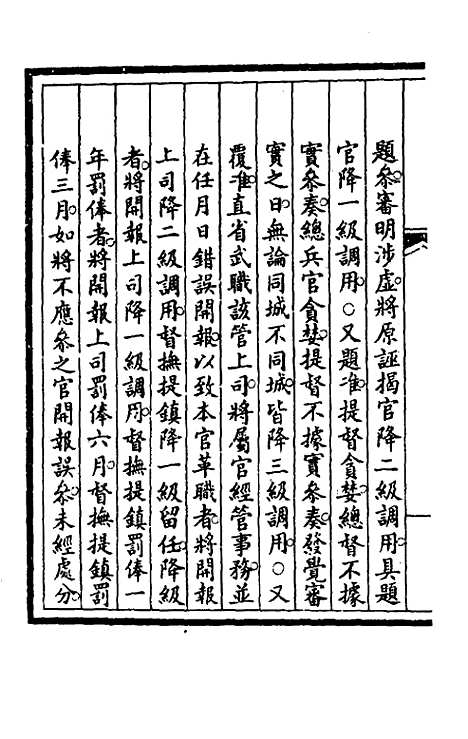 題參審明涉虛將原誣揭官降二級調用具題
官降一級調用○又題准提督貪婪總督不據
實參奏總兵官貪婪提督不據實參奏發覺審
實之日無論同城不同城皆降三級調用○又
覆准直省武職該管上司將屬官經管事務並
在任月日錯誤開報以致本官革職者將開報
上司降二級調用督撫提鎮降一級留任降級
者將開報上司降一級調用督撫提鎮罰俸一
年罰俸者將開報上司罰俸六月督撫提鎮罰
俸三月如將不應參之官開報誤參未經處分